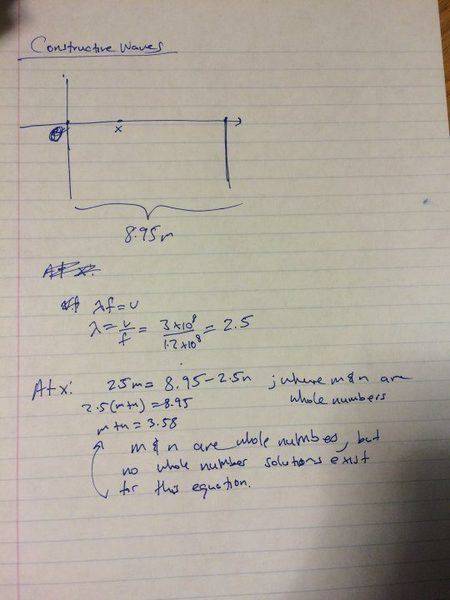 Constructive Waves
x
8.95m
At x:
λf=v
λ = v/f = 3×10⁸/1.2×10⁸ = 2.5
At x: 2.5m = 8.95-2.5n ; where m & n are whole numbers
2.5(m+n)=8.95
m+n=3.58
m & n are whole numbers, but
no whole number solutions exist
for this equation.